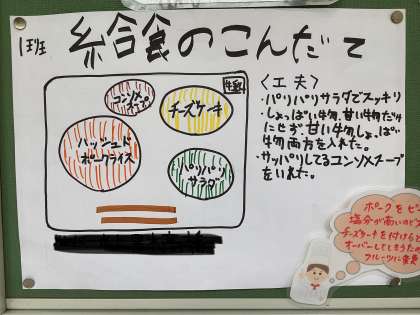 1班
給食のこんだて
コンソメ
スープ
牛乳
チーズケーキ
ハッシュド
ポークライス
パリパリ
サラダ
〈工夫〉
・パリパリサラダでスッキリ
・しょっぱい物、甘い物だけ
にせず、甘い物、しょっぱい
物両方を入れた。
・サッパリしてるコンソメスープ
をいれた。
ポークをビ
塩分が高いので
チーズケーキを付けると
オーバーしてしまうため
フルーツに変更